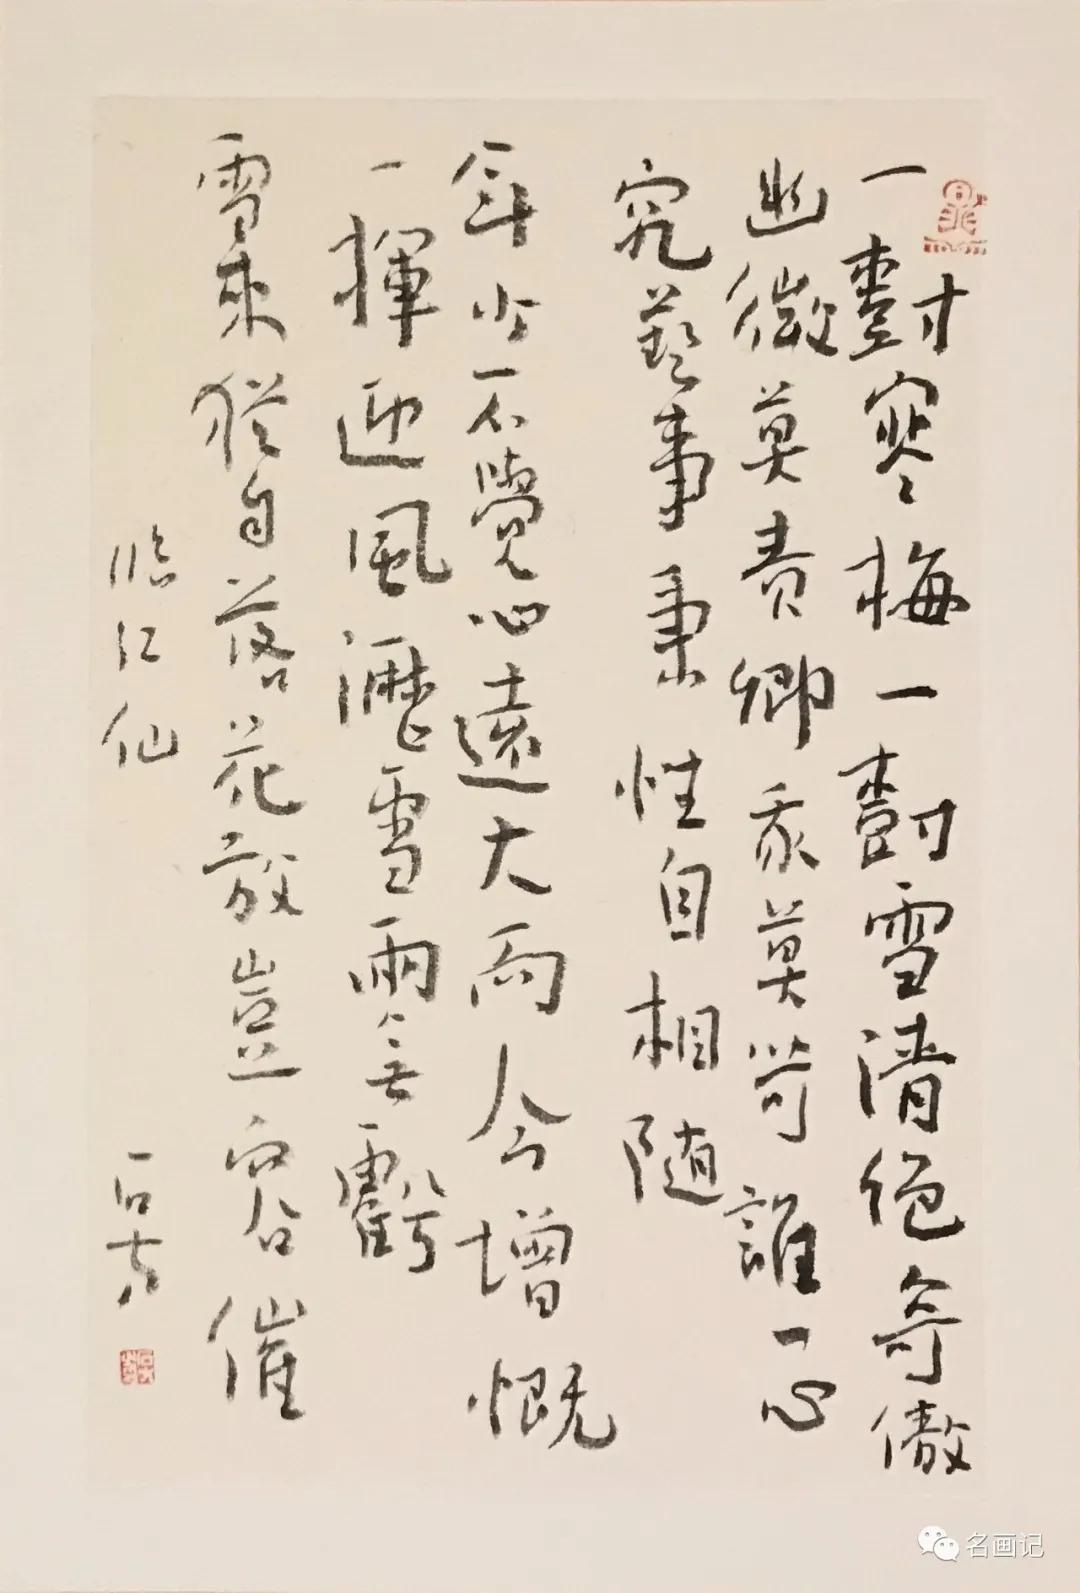 一對寒梅一對雪清絕奇傲
幽微莫責卿我莫苛誰一心
究藝事秉性自相随
年少不覺心遠大而今增慨
一揮迎風瀝雪雨無虧
雪來從自落花放豈容催
臨江仙
石
名画记